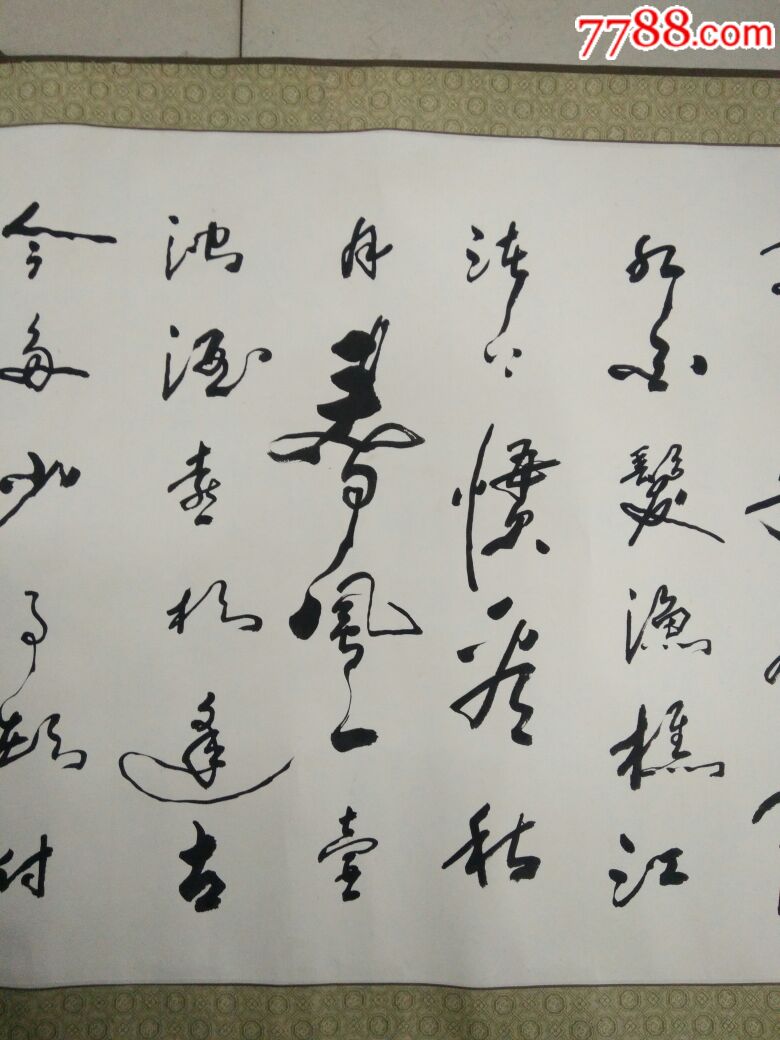 7788.com
紅白髮漁樵江
渚上慣看秋
月春風一壺
浊酒喜相逢古
今多少事都付